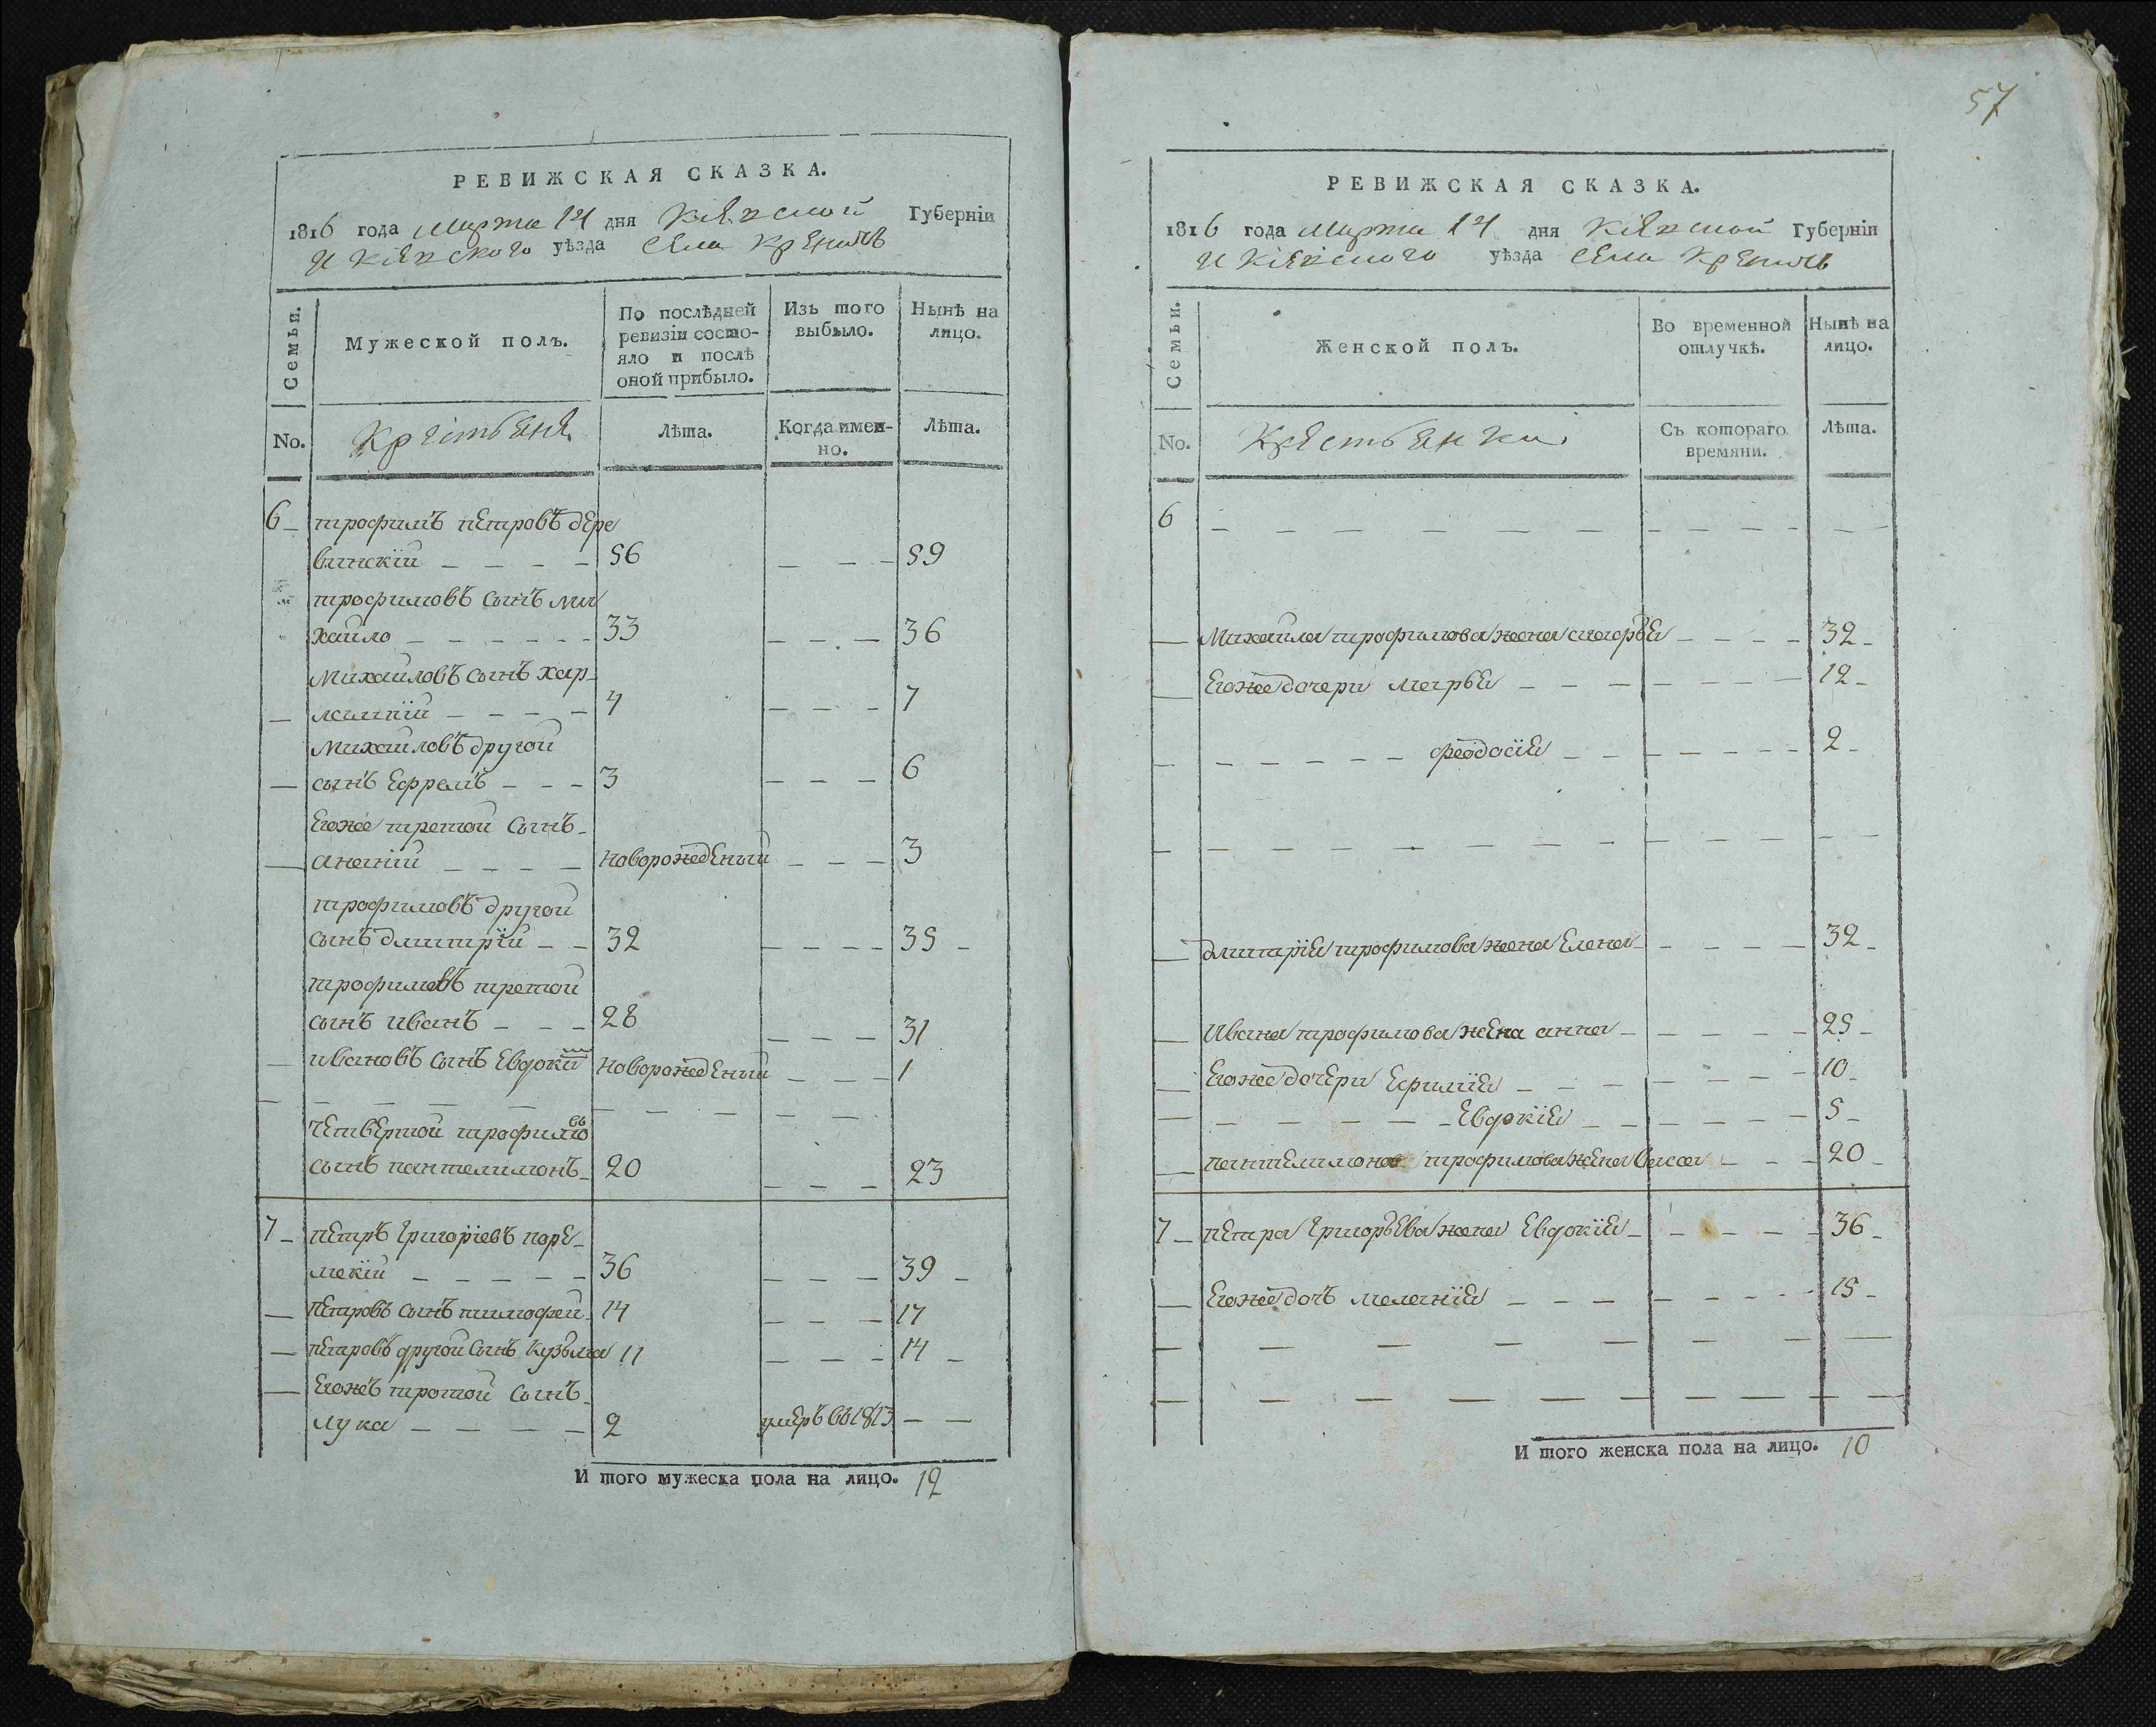 РЕВИЖСКАЯ СКАЗКА.
1816 года Марта 14 дня Кіевской Губерніи
И Кіевского уѣзда села Кренычъ
Семьи.
Мужеской полъ.
По послѣдней ревизіи состояло и послѣ оной прибыло.
Изъ того выбыло.
Нынѣ на лицо.
No.
Крестьяне
Лѣта.
Когда именно.
Лѣта.
6 трофимъ петровъ дере
винскїй 56 59
трофимовъ сынъ ми
хайло 33 36
михайловъ сынъ хар
лампїй 4 7
михайловъ другой
сынъ Ефремъ 3 6
Егоже третой сынъ
ананїй новорожденый 3
трофимовъ другой
сынъ дмитрїй 32 35
трофимовъ третой
сынъ иванъ 28 31
ивановъ сынъ Евдокимъ новорожденый 1
четвертой трофимовъ
сынъ пантелимонъ 20 23
7 петръ григорїевъ
36 39
петровъ сынъ тимофей 14 17
петровъ другой сынъ кузьма 11 14
Егожъ третой сынъ
лука 2 умеръ въ 1813
И того мужеска пола на лицо. 12
57
РЕВИЖСКАЯ СКАЗКА.
1816 года Марта 14 дня Кіевской Губерніи
И Кіевского уѣзда села Кренычъ
Семьи.
Женской полъ.
Во временной отлучкѣ.
Нынѣ на лицо.
No.
Крестьянки
Съ котораго времяни.
Лѣта.
6
Михайла трофимова жена 32
Егоже дочери марья 12
феодосїя 2
дмитрїя трофимова жена Елена 32
Ивана трофимова жена анна 25
Егоже дочери Ефимїя 10
Евдокїя 5
пантелимона трофимова жена васса 20
7 петра григорьева жена Евдокїя 36
Егоже дочь меланїя 15
И того женска пола на лицо. 10